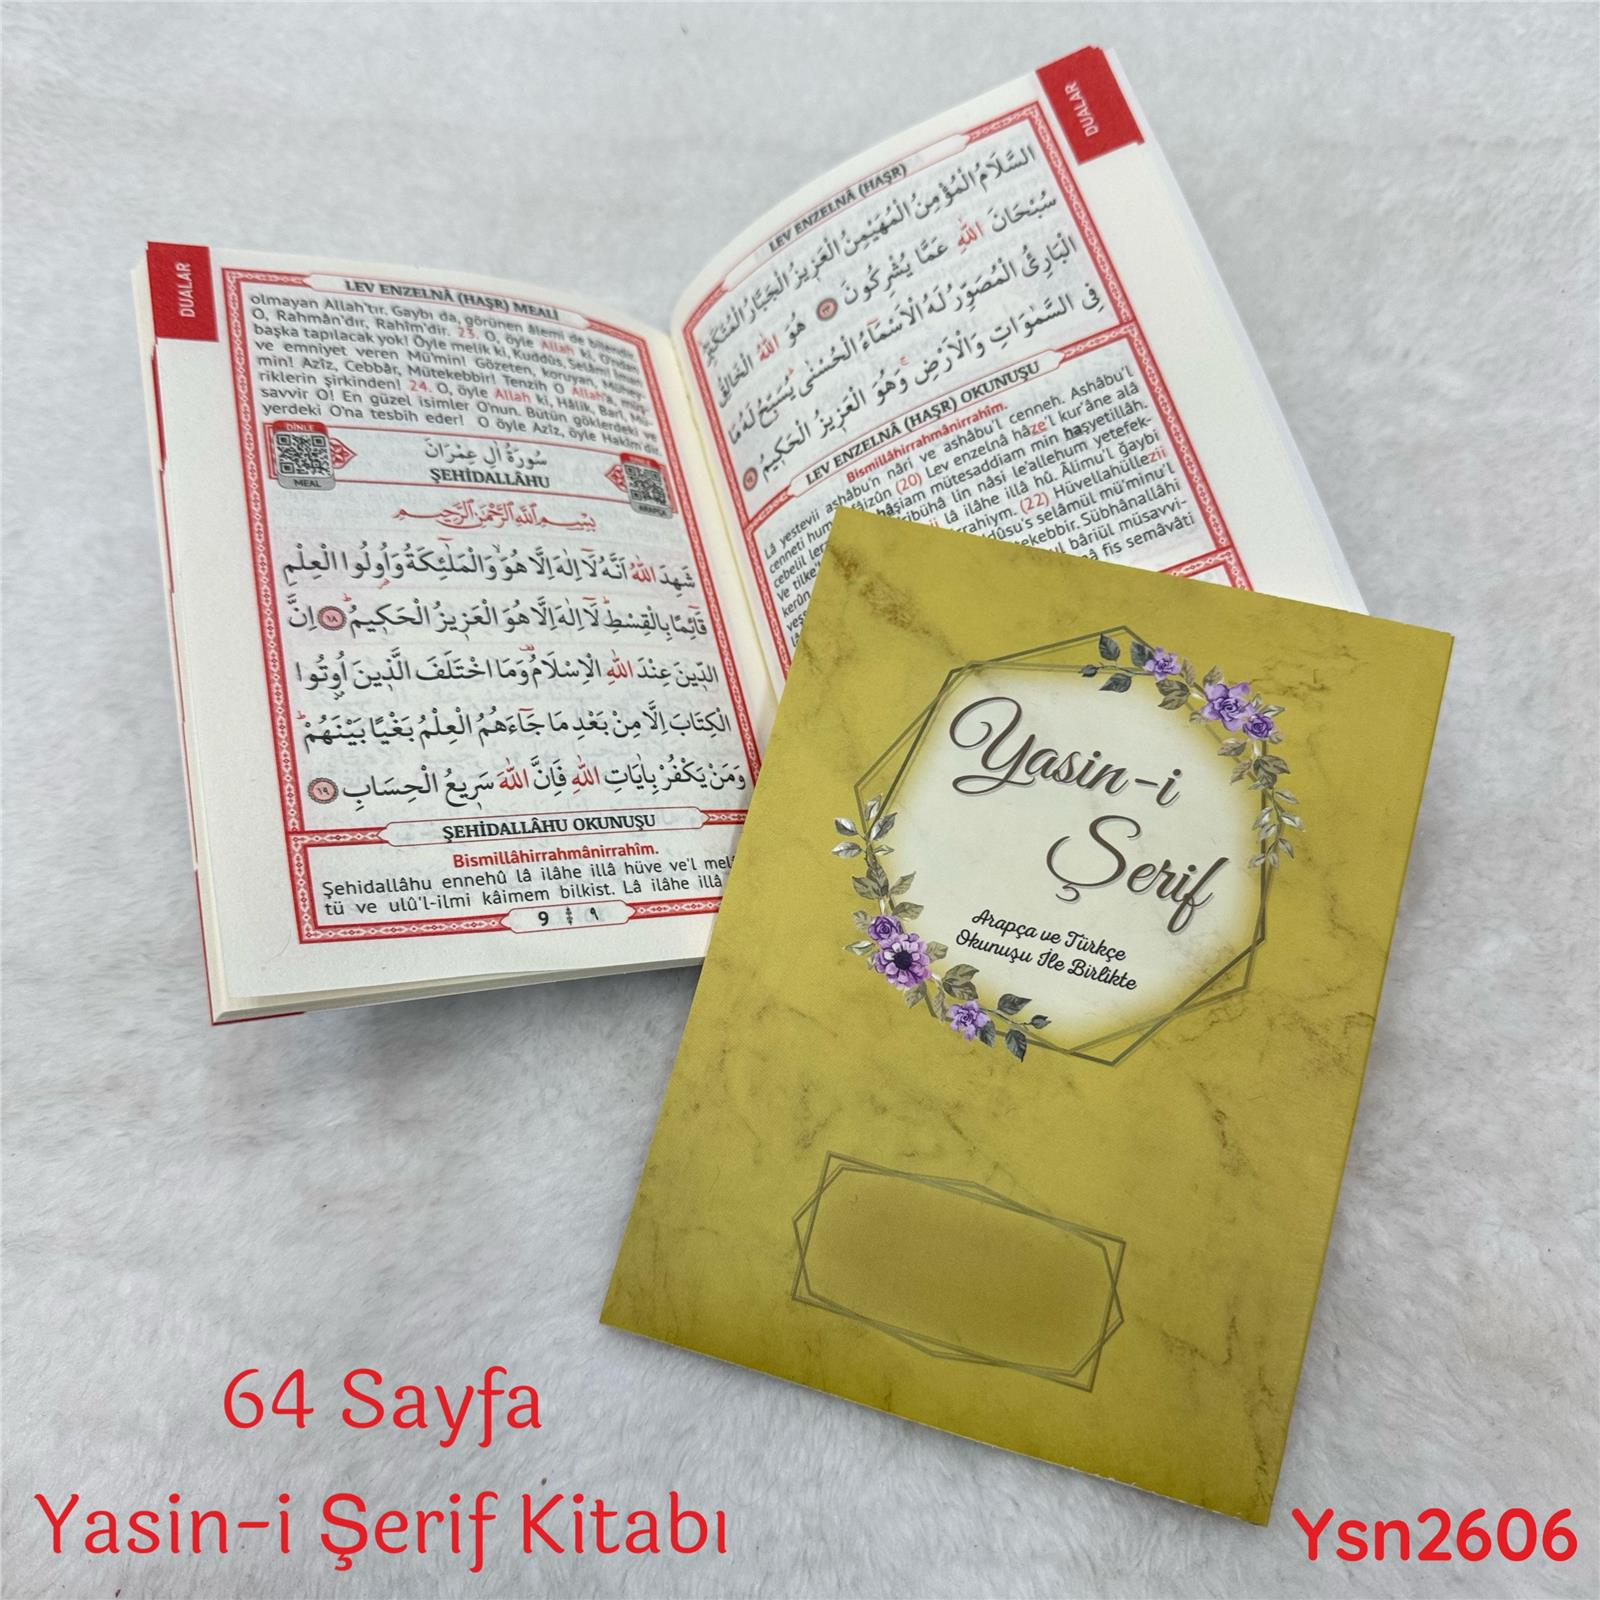 DUALAR
LEV ENZELNÂ (HAŞR) MEALİ
olmayan Allah'tır. Gaybı da, görünen âlemi de bilendir.
O, Rahmân'dır, Rahîm'dir. 23. O, öyle Allah ki, O'ndan
başka tapılacak yok! Öyle melik ki, Kuddûs, Selâm! İman
ve emniyet veren Mü'min! Gözeten, koruyan, Müheymin!
min! Azîz, Cebbâr, Mütekebbir! Tenzih O Allah'a, müş-
riklerin şirkinden! 24. O, öyle Allah ki, Hâlik, Bari, Mu-
savvir O! En güzel isimler O'nun. Bütün göklerdeki ve
yerdeki O'na tesbih eder! O öyle Azîz, öyle Hakîm'dir.
DİNLE
MEAL
سُورَةُ اٰلِ عِمْرَانَ
ŞEHİDALLÂHU
ARAPÇA
بِسْمِ اللّٰهِ الرَّحْمٰنِ الرَّحِيمِ
شَهِدَ اللّٰهُ اَنَّهُ لَٓا اِلٰهَ اِلَّا هُوَۙ وَالْمَلٰٓئِكَةُ وَاُولُوا الْعِلْمِ
قَٓائِمًا بِالْقِسْطِۜ لَٓا اِلٰهَ اِلَّا هُوَ الْعَزِيزُ الْحَكِيمُۜ ﴿١٨﴾ اِنَّ
الدّ۪ينَ عِنْدَ اللّٰهِ الْاِسْلَامُ۠ وَمَا اخْتَلَفَ الَّذ۪ينَ اُو۫تُوا
الْكِتَابَ اِلَّا مِنْ بَعْدِ مَا جَٓاءَهُمُ الْعِلْمُ بَغْيًا بَيْنَهُمْۜ
وَمَنْ يَكْفُرْ بِاٰيَاتِ اللّٰهِ فَاِنَّ اللّٰهَ سَر۪يعُ الْحِسَابِ ﴿١٩﴾
ŞEHİDALLÂHU OKUNUŞU
Bismillâhirrahmânirrahîm.
Şehidallâhu ennehû lâ ilâhe illâ hüve ve'l mel
tü ve ulû'l-ilmi kâimem bilkist. Lâ ilâhe illâ
9 ٩
DUALAR
LEV ENZELNÂ (HAŞR)
السَّلَامُ الْمُؤْمِنُ الْمُهَيْمِنُ الْعَز۪يزُ الْجَبَّارُ الْمُتَكَبِّرُۜ
سُبْحَانَ اللّٰهِ عَمَّا يُشْرِكُونَ ﴿٢٣﴾ هُوَ اللّٰهُ الْخَالِقُ
الْبَارِئُ الْمُصَوِّرُ لَهُ الْاَسْمَٓاءُ الْحُسْنٰىۜ يُسَبِّحُ لَهُ مَا
فِي السَّمٰوَاتِ وَالْاَرْضِۚ وَهُوَ الْعَز۪يزُ الْحَك۪يمُ ﴿٢٤﴾
LEV ENZELNÂ (HAŞR) OKUNUŞU
Bismillâhirrahmânirrahîm.
Lâ yestevii ashâbu'n nâri ve ashâbu'l cenneh. Ashâbu'l
cenneti hum fâizûn (20) Lev enzelnâ hâze'l kur'âne alâ
cebelil le hâşiam mütesaddiam min haşyetillâh.
ve tilke'l ribühâ lin nâsi le'allehum yetefek-
kerûn lâ ilâhe illâ hû. Âlimu'l ğaybi
veşş rahiym. (22) Hüvellahüllezii
lâ ddûsu's selâmül mü'minu'l
tekebbir. Sübhânallâhi
bâriül müsavvi-
fis semâvâti
Yasin-i
Şerif
Arapça ve Türkçe
Okunuşu İle Birlikte
64 Sayfa
Yasin-i Şerif Kitabı
Ysn2606